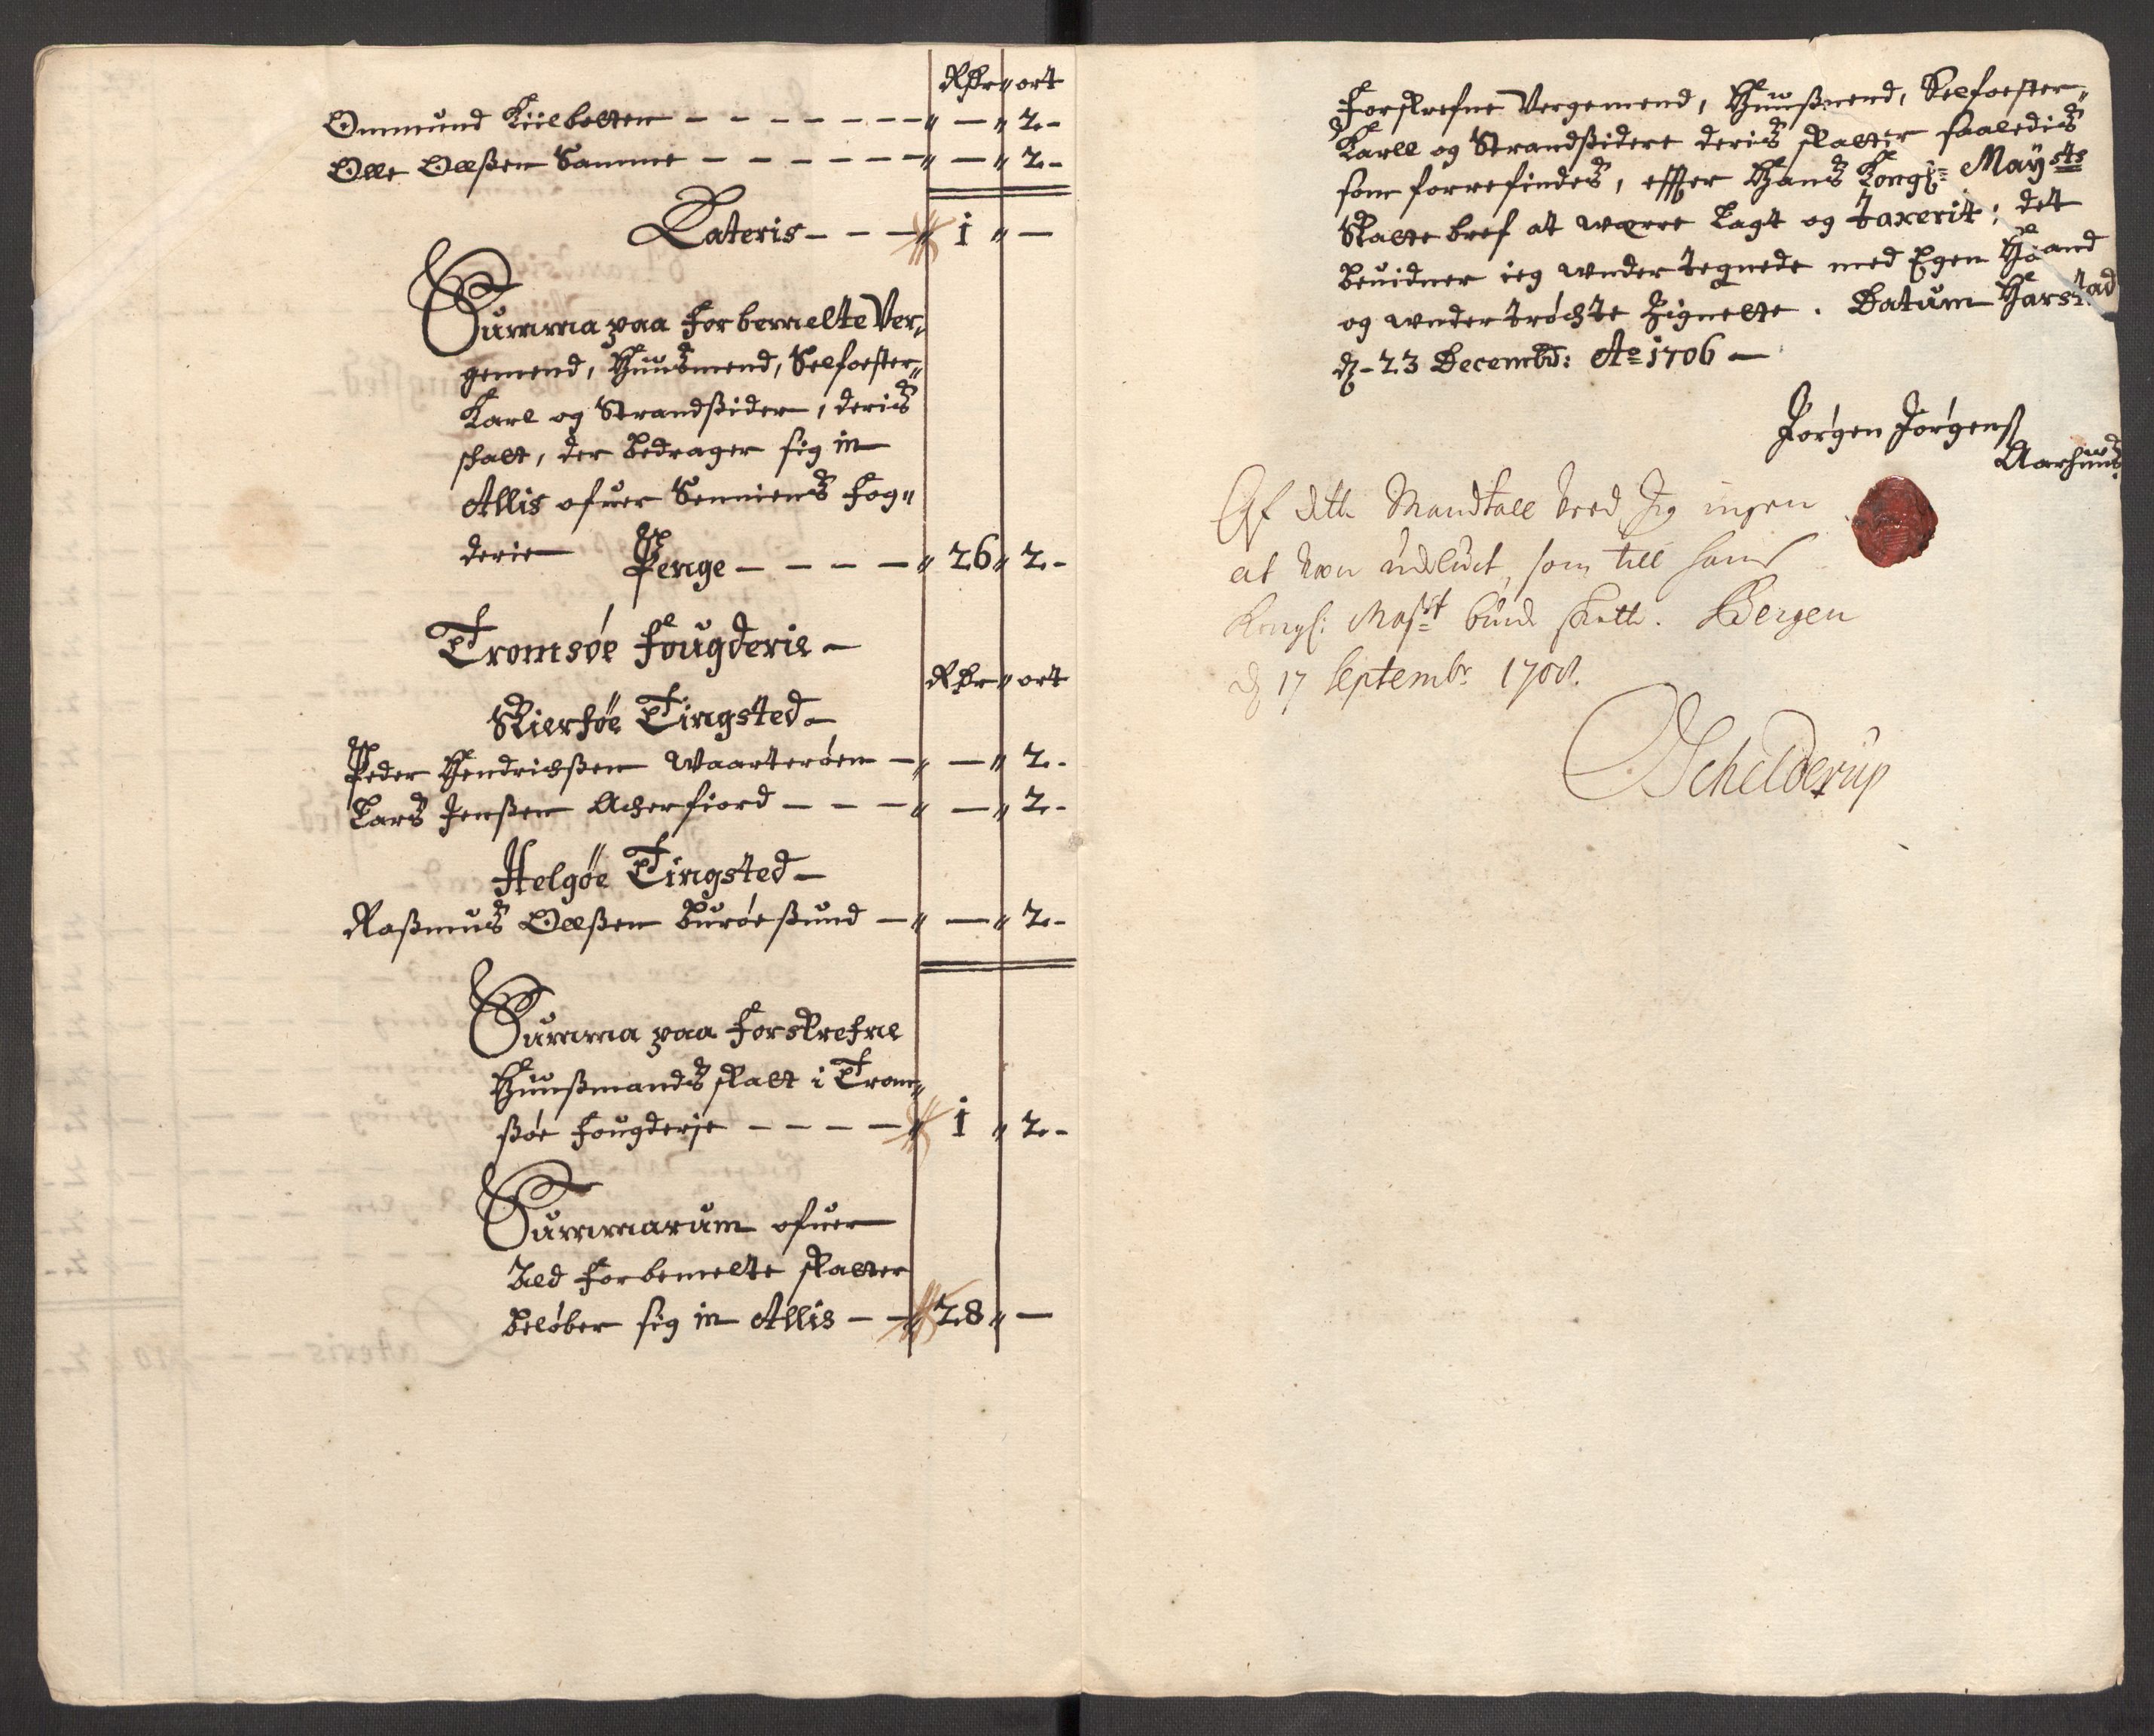 Rdr " ort
Ommund Kiilbotten - - - - - - - " — " 2 -
Olle Ollßen Samme - - - - - - " — " 2 -
Lateris - - - " 1 " —
Summa paa forbemelte Ver,,
gemend, Huusmend, Selfoster,,
Karl og Strandßidern, deris
skatt, der bedrager sig in
Allis ofuer Senniens fog,,
derie Penge - - - - " 26 " 2 -
Tromsøe fougderie -
Rdr " ort
Skierføe Tingsted -
Peder Hendrichßen Waarterøen - " — " 2 -
Lars Jenßen Acherfiord - - - " — " 2 -
Helgøe Tingsted -
Raßmus Ollßen Burøeßund - " — " 2 -
Summa paa forskrefne
Huußmands skatt i Trom,,
ßøe fougderje - - - - " 1 " 2 -
Summarum ofuer
ald forbemelte skatter
beløber sig in Allis - - " 28 " —
Forskrefne Vergemend, Huußmend, Selfoster,,
Karll og Strandßidere deris skatter saaledis
som forrefindes, effter Hans Kongl: Mayts
Skatte bref at wærre lagt og taxerit; det
beuidner ieg under tegnede med Egen Haand
og under trøchte Zignette. Datum Harstad
dn - 23 Decembr: Ao 1706 -
Jørgen Jørgenß
Aarhuus
Af dette Mandtall veed Jeg ingen
at være udeluct, som till hans
Kongl: Mayst burde skatte. Bergen
d 17 Septembr 1708.
Schelderup